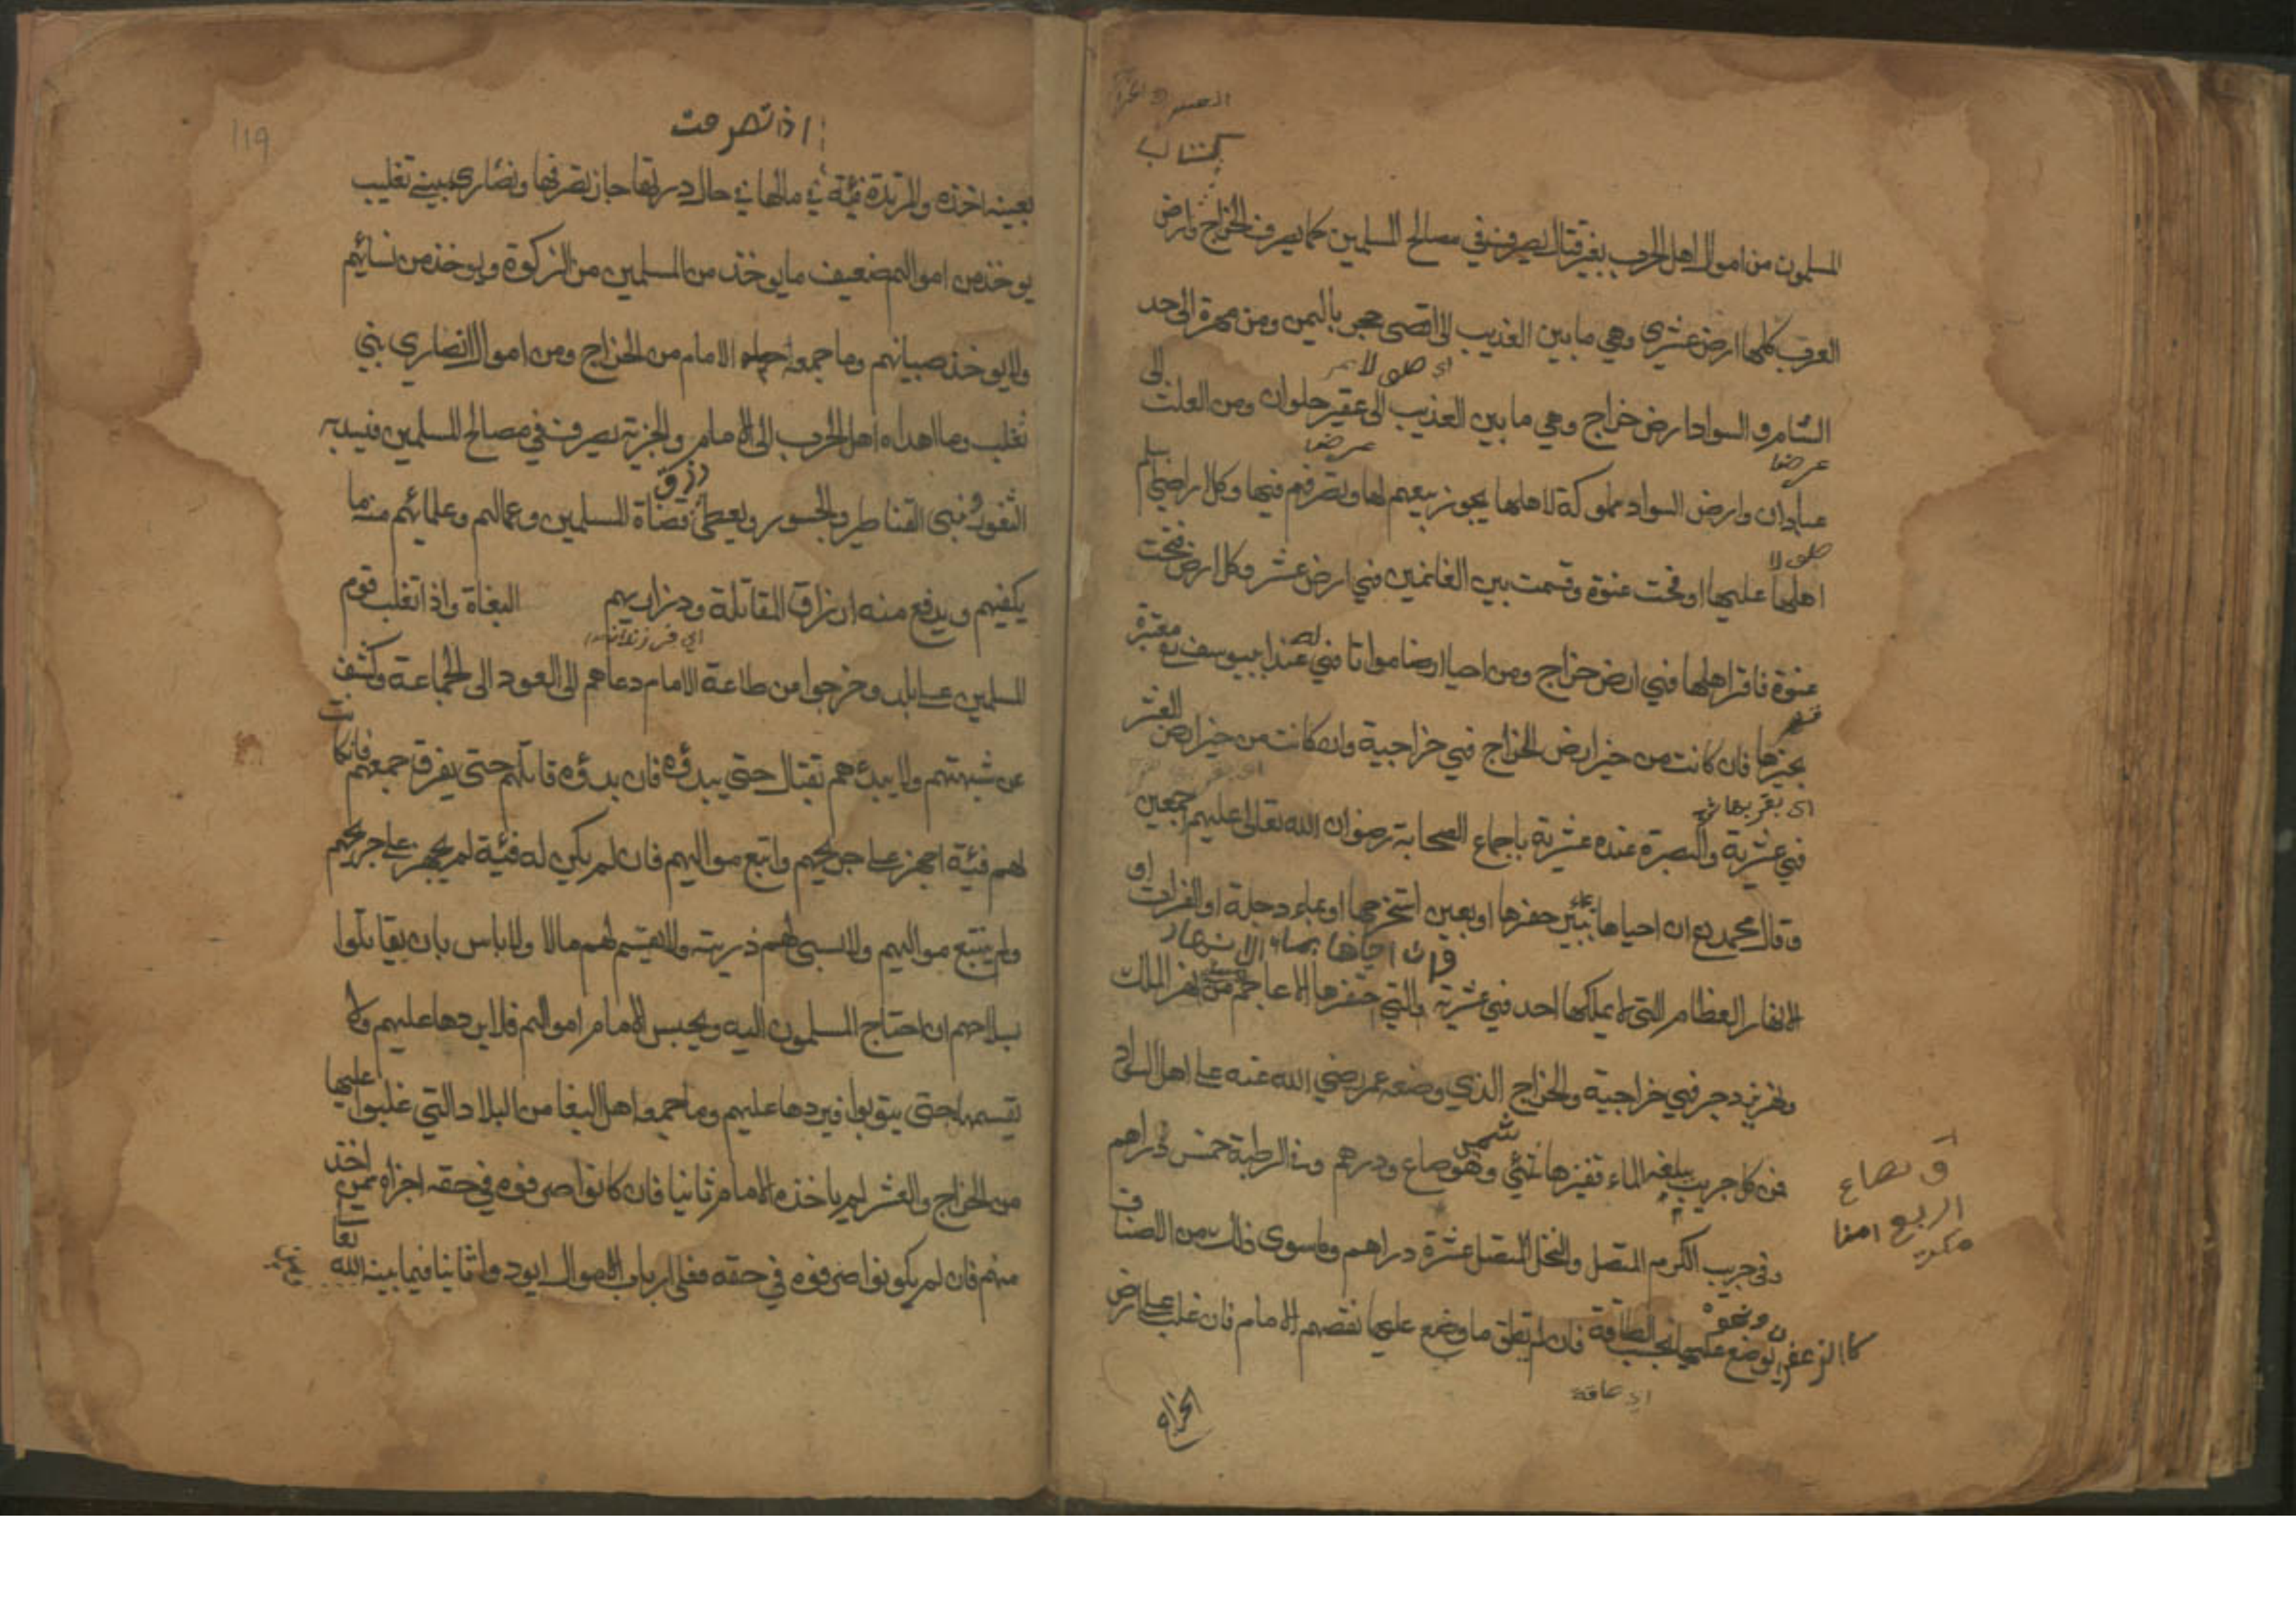 كتاب
المسلمون من اموال اهل الحرب بغير قتال يصرف في مصالح المسلمين كما يصرف الخراج وارض
العرب كلها ارض عشري وهي ما بين العذيب الى اقصى حجر باليمن ومن مهرة الى حد
اي طولا
الشام والسواد ارض خراج وهي ما بين العذيب الى عقبر حلوان ومن العلث الى
عرضا
عرضا
عبادان وارض السواد مملوكة لاهلها يجوز بيعهم لها وتصرفهم فيها وكل اراضي اسلم
طولا
اهلها عليها او فتحت عنوة وقسمت بين الغانمين فهي ارض عشر وكل ارض فتحت
عنوة فاقر اهلها فهي ارض خراج ومن احيا ارضا مواتا فهي عند ابييوسف رح معتبرة
بحيزها فان كانت من حيز ارض الخراج فهي خراجية وان كانت من حيز ارض العشر
اي بقربها
فهي عشرية والبصرة عنده عشرية باجماع الصحابة رضوان الله تعالى عليهم اجمعين
وقال محمد رح ان احياها ببئر حفرها او بعين استخرجها او بماء دجلة او الفرات او
وان احياها بماء الانهار
الانهار العظام التي لا يملكها احد فهي عشرية بالتي حفرها الاعاجم مثل نهر الملك
ونهر يزدجر فهي خراجية والخراج الذي وضعه عمر رضي الله عنه على اهل السواد
من كل جريب يبلغه الماء قفيز هاشمي وهو صاع ودرهم وفي الرطبة خمس دراهم
وفي جريب الكرم المتصل والنخل المتصل عشرة دراهم وما سوى ذلك من الاصناف
كالزعفران ونحوه يوضع عليها بحسب الطاقة فان لم تطق ما وضع عليها نقصهم الامام فان غلب على ارض
اي طاقة
الخراج
119
اذا تصرفت
بعينه اخذه والمرتدة فيئة في مالها في حال درتها جاز تصرفها ونصارى بني تغليب
يوخذ من اموالهم ضعيف ما يوخذ من المسلمين من الزكوة ويوخذ من نسائهم
ولا يوخذ صبيانهم وما جمعه الامام من الخراج ومن اموال النصاري بني
تغلب وما اهداه اهل الحرب الى الامام والجزية يصرف في مصالح المسلمين فيسد به
رزق
الثغور وبنى القناطر والجسور ويعطى قضاة المسلمين وعمالهم وعلمائهم منه ما
يكفيهم ويدفع منه ارزاق المقاتلة وذراريهم البغاة واذا تغلب قوم
المسلمين على بلد وخرجوا من طاعة الامام دعاهم الى العود الى الجماعة وكشف
عن شبهتهم ولا يبدءهم بقتال حتى يبدؤه فان بدؤه قاتلهم حتى يفرق جمعهم فان كانت
لهم فيئة اجهز على جريحهم واتبع مواليهم فان لم يكن له فيئة لم يجهز على جريحهم
ولم يتبع مواليهم ولا تسبى لهم ذريته ولا يقسم لهم مالا ولا باس بان يقاتلوا
بسلاحهم ان احتاج المسلمون اليه ويحبس الامام اموالهم فلا يردها عليهم ولا
يقسمها حتى يتوبوا فيردها عليهم وما جمعه اهل البغا من البلاد التي غلبوا عليها
من الخراج والعشر لم ياخذه الامام ثانيا فان كانوا صرفوه في حقه اجزاه ممن اخذ
منهم فان لم يكونوا صرفوه في حقه فعلى ارباب الاموال ان يودوا ثانيا فيما بينه الله تعا